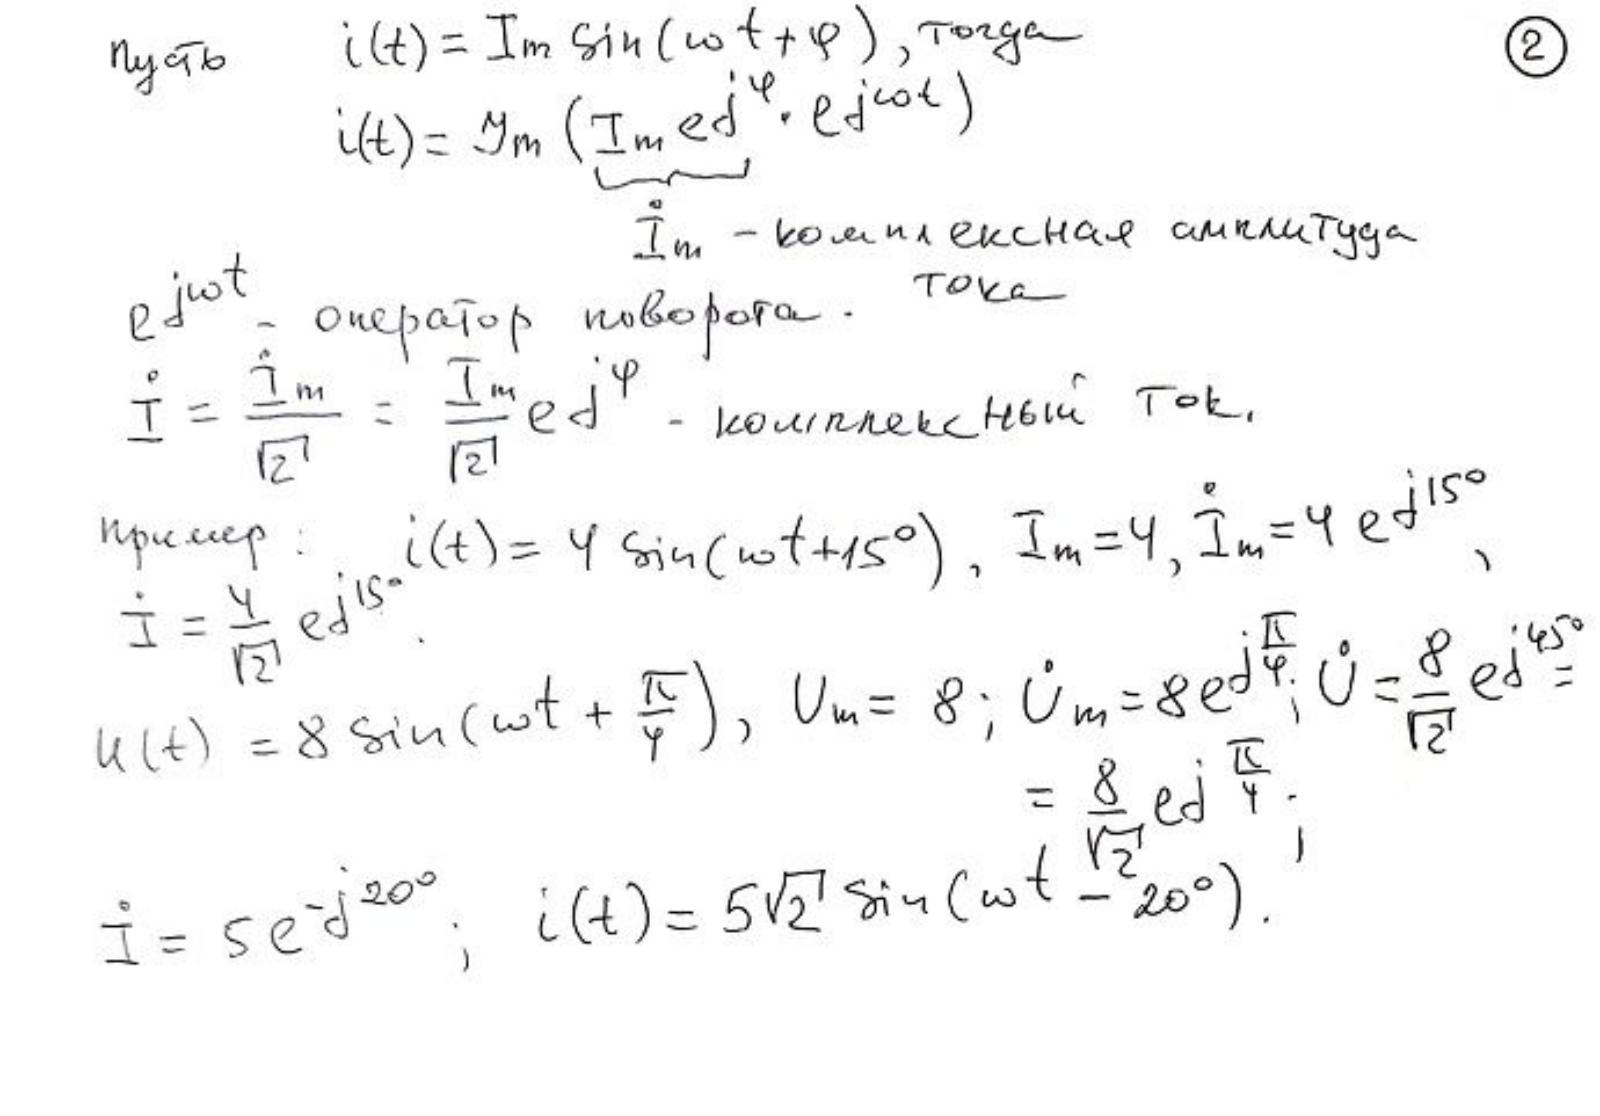 Пусть i(t) = Im sin(ωt+φ), тогда ②
i(t) = Jm (Im e^jφ · e^jωt)
İm – комплексная амплитуда
тока
e^jωt – оператор поворота.
İ = İm/√2 = Im/√2 e^jφ – комплексный ток.
Пример: i(t) = 4 sin(ωt+15°), Im=4, İm=4 e^j15°,
İ = 4/√2 e^j15°.
u(t) = 8 sin(ωt + π/4), Um = 8; U̇m = 8e^jπ/4; U̇ = 8/√2 e^j45° =
= 8/√2 e^jπ/4;
İ = 5e^-j20°; i(t) = 5√2 sin(ωt – 20°).